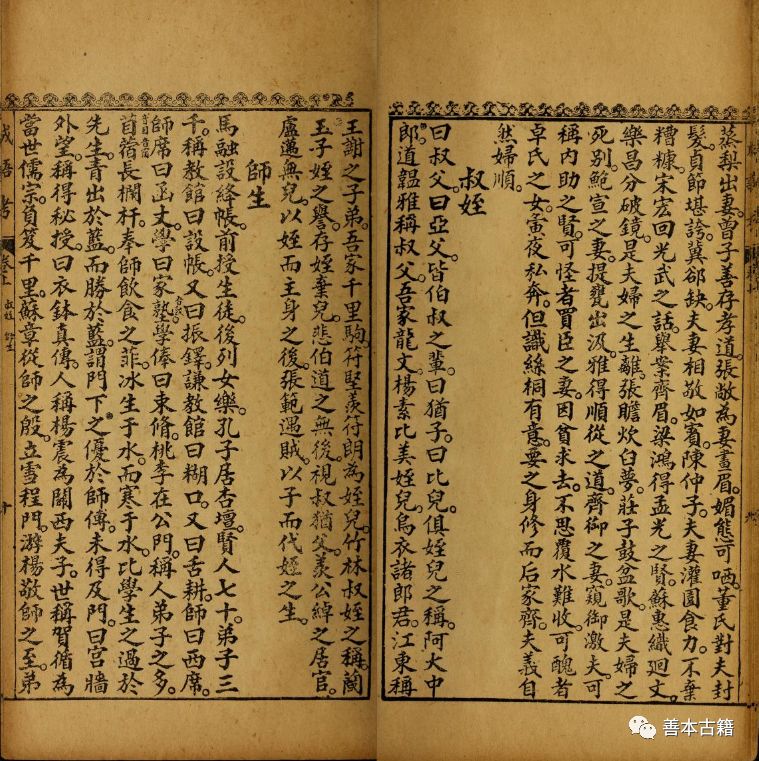 蒸梨出妻。曾子善存孝道。張敞為妻畫眉。媚態可哂。董氏對夫封
髮。貞節堪誇。冀郤缺。夫妻相敬如賓。陳仲子。夫妻灌園食力。不棄
糟糠。宋宏回光武之話。舉案齊眉。梁鴻得孟光之賢。蘇惠織迴文。
樂昌分破鏡。是夫婦之生離。張瞻炊臼夢。莊子鼓盆歌。是夫婦之
死別。鮑宣之妻。提甕出汲。雅得順從之道。齊御之妻。窺御激夫。可
稱內助之賢。可怪者買臣之妻。因貧求去。不思覆水難收。可醜者
卓氏之女。寅夜私奔。但識絲桐有意。要之身修而后家齊。夫義自
然婦順。
叔姪
曰叔父。曰亞父。皆伯叔之輩。曰猶子。曰比兒。俱姪兒之稱。阿大中
郎。道韞雅稱叔父。吾家龍文。楊素比美姪兒。烏衣諸郎君。江東稱
王謝之子弟。吾家千里駒。苻堅羨苻朗為姪兒。竹林叔姪之稱。蘭
玉子姪之譽。存姪棄兒。悲伯道之無後。視叔猶父。羨公綽之居官。
盧邁無兒。以姪而主身之後。張範遇賊。以子而代姪之生。
師生
馬融設絳帳。前授生徒。後列女樂。孔子居杏壇。賢人七十。弟子三
千。稱教館曰設帳。又曰振鐸。謙教館曰糊口。又曰舌耕。師曰西席。
師席曰函丈。學曰家塾。學俸曰束脩。桃李在公門。稱人弟子之多。
苜蓿長欄杆。奉師飲食之菲。冰生于水。而寒于水。比學生之過於
先生。青出於藍。而勝於藍。謂門下之優於師傅。未得及門。曰宮牆
外望。稱得秘授。曰衣鉢真傳。人稱楊震為關西夫子。世稱賀循為
當世儒宗。負笈千里。蘇章從師之殷。立雪程門。游楊敬師之至。弟
成語考
卷上
叔姪 師生
十
善本古籍